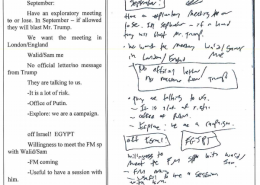 September:
Have an exploratory meeting to or lose. In September – if allowed they will blast Mr. Trump.
We want the meeting in London/England
Walid/Sam me
No official letter/no message from Trump
They are talking to us.
-It is a lot of risk.
-Office of Putin.
-Explore: we are a campaign.
off Israel! EGYPT
Willingness to meet the FM sp with Walid/Sam
-FM coming
-Useful to have a session with him.
September:
Have an exploratory meeting to or
lose. In September – if allowed
they will blast Mr. Trump.
We want the meeting Walid/Sam
in London/England me
No official letter/
no message from Trump
They are talking to us.
It is a lot of risk.
office of Putin.
Explore: we are a campaign.
off Israel! EGYPT
willingness to
meet the FM sp with Walid/
Sam
FM coming
Useful to have a session
with him